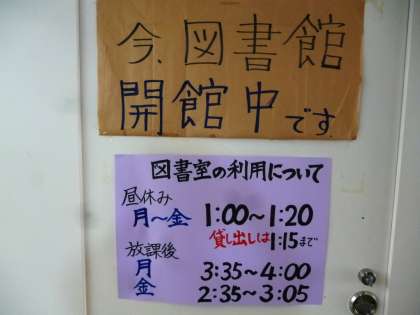 今、図書館
開館中です
図書室の利用について
昼休み
月～金 1:00～1:20
貸し出しは1:15まで
放課後
月 3:35～4:00
金 2:35～3:05